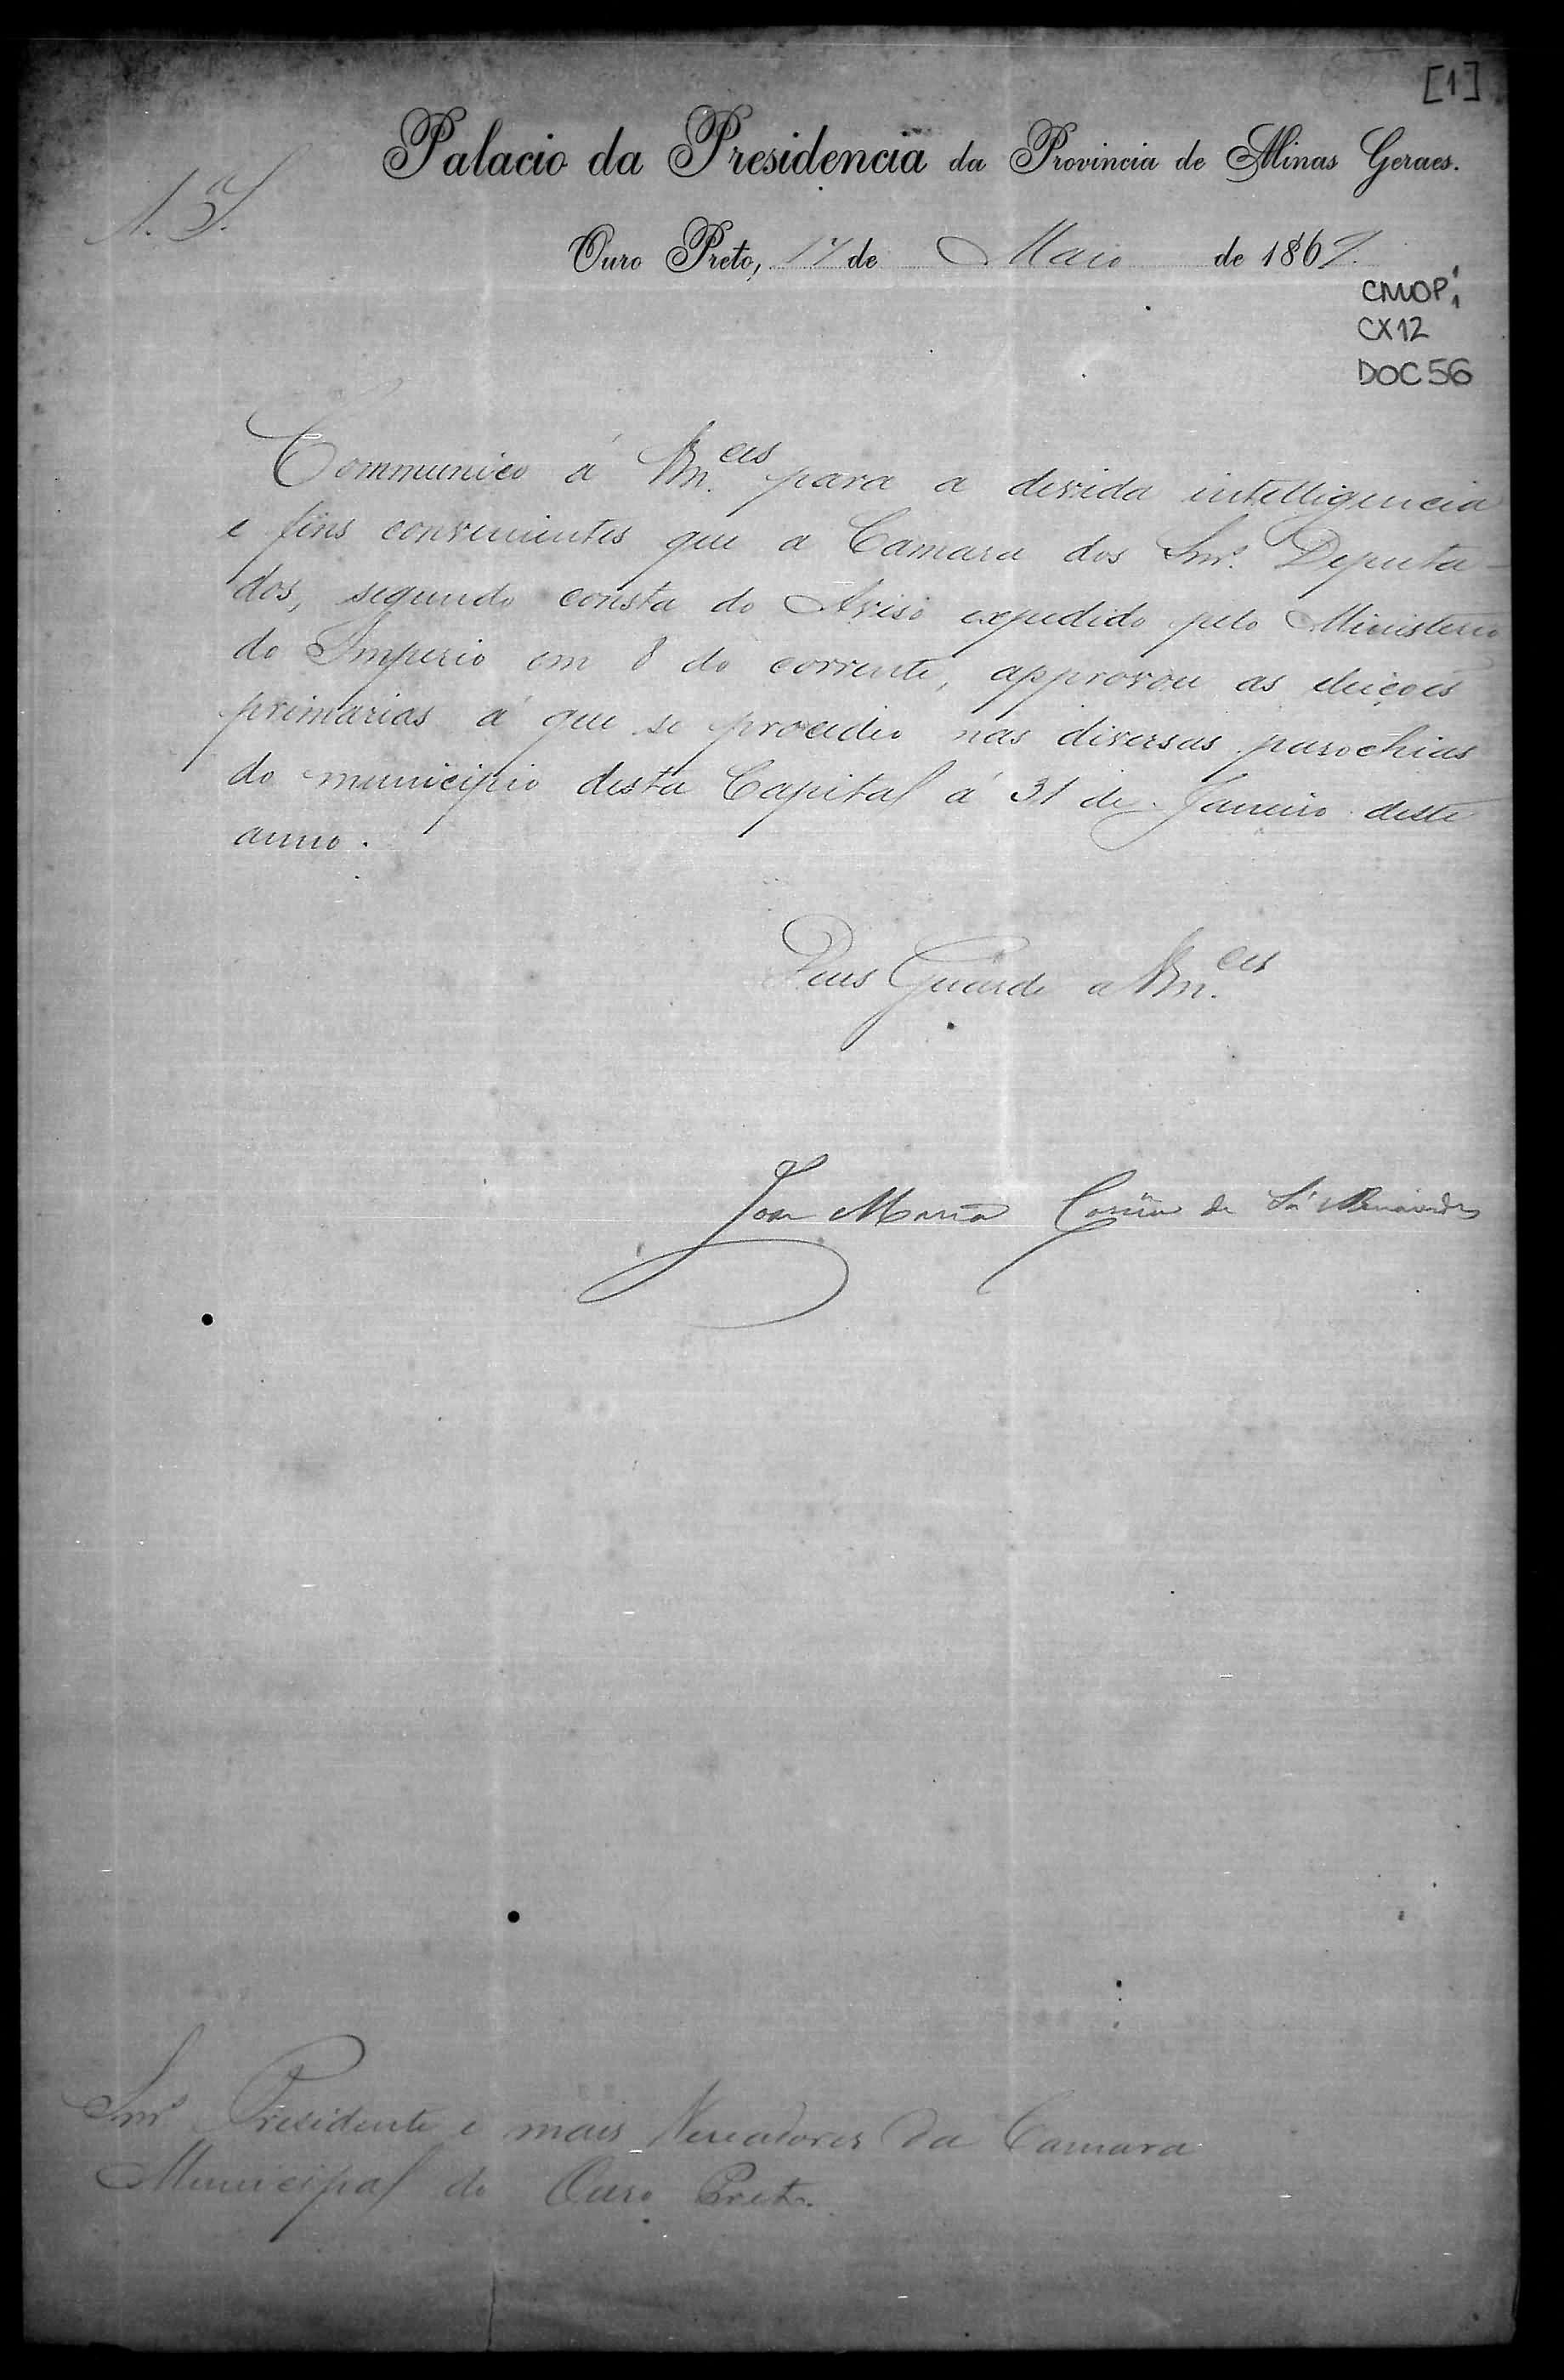 [1]
Palacio da Presidencia da Provincia de Minas Geraes.
Ouro Preto, 17 de Maio de 1869.
CMOP
CX12
DOC56
Communico á Vm.ces para a devida intelligencia
e fins convenientes que a Camara dos Snrs. Deputa-
dos, segundo consta do Aviso expedido pelo Ministerio
do Imperio em 8 do corrente, approvou as eleições
primarias á que se procedeu nas diversas parochias
do municipio desta Capital á 31 de Janeiro deste
anno.
Deus Guarde a Vm.ces
José Maria Corrêa de Sá e Benevides
Snrs Presidente e mais Vereadores da Camara
Municipal do Ouro Preto.